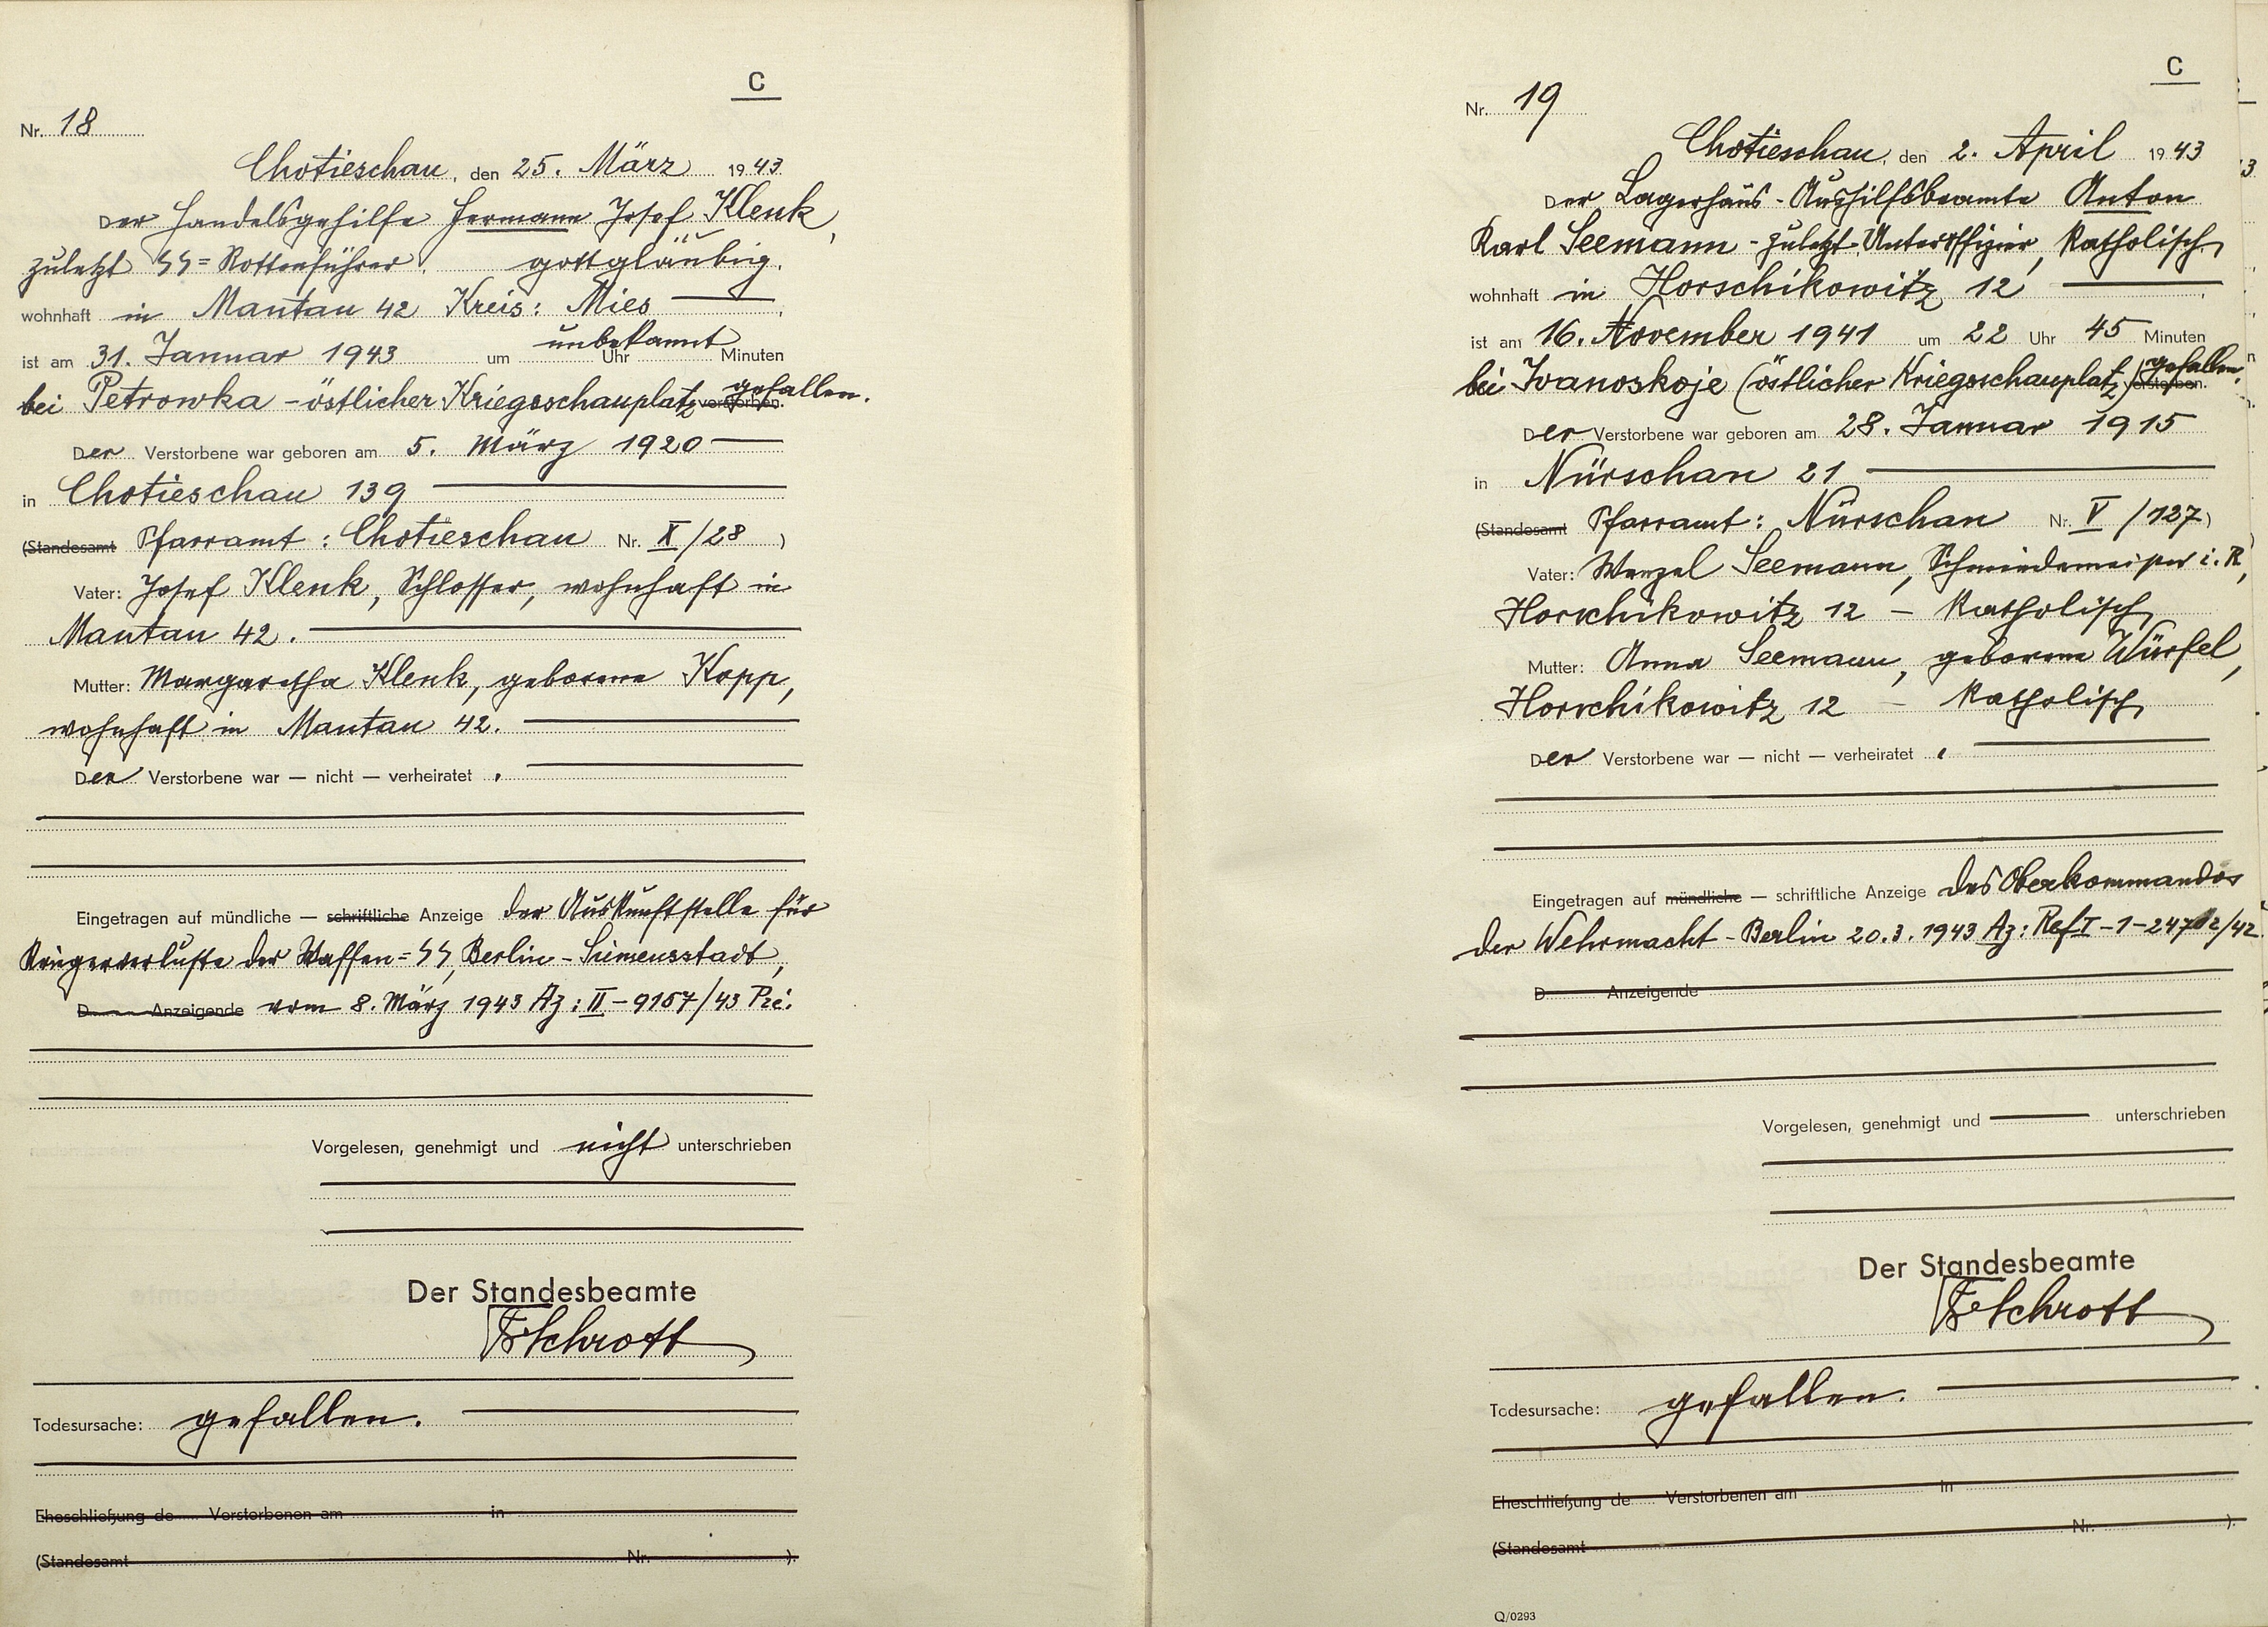 C
Nr. 18
Chotieschau, den 25. März 1943
Der Handelsgehilfe Hermann Josef Klenk,
zuletzt SS=Rottenführer, gottgläubig,
wohnhaft in Mantau 42 Kreis: Mies
ist am 31. Januar 1943 um unbekannt Uhr Minuten
bei Petrowka - östlicher Kriegsschauplatz verstorben. gefallen.
Der Verstorbene war geboren am 5. März 1920
in Chotieschau 139
(Standesamt Pfarramt: Chotieschau Nr. X/28)
Vater: Josef Klenk, Schlosser, wohnhaft in
Mantau 42.
Mutter: Margaretha Klenk, geborene Kopp,
wohnhaft in Mantau 42.
Der Verstorbene war — nicht — verheiratet.
Eingetragen auf mündliche — schriftliche Anzeige der Auskunftstelle für
Kriegerverluste der Waffen=SS, Berlin-Siemensstadt,
D Anzeigende vom 8. März 1943 Az: II-9167/43
Vorgelesen, genehmigt und nicht unterschrieben
Der Standesbeamte
Schrott
Todesursache: gefallen.
Eheschließung de Verstorbenen am in
(Standesamt Nr. ).
C
Nr. 19
Chotieschau, den 2. April 1943
Der Lagerhaus-Aushilfsbeamte Anton
Karl Seemann - zuletzt Unteroffizier, katholisch
wohnhaft in Horschikowitz 12,
ist am 16. November 1941 um 22 Uhr 45 Minuten
bei Ivanoskoje (östlicher Kriegsschauplatz) verstorben. gefallen.
Der Verstorbene war geboren am 28. Januar 1915
in Nürschan 21
(Standesamt Pfarramt: Nürschan Nr. V/127)
Vater: Wenzel Seemann, Schmiedemeister i. R.,
Horschikowitz 12 - katholisch
Mutter: Anna Seemann, geborene Würfel,
Horschikowitz 12 - katholisch
Der Verstorbene war — nicht — verheiratet.
Eingetragen auf mündliche — schriftliche Anzeige des Oberkommandos
der Wehrmacht - Berlin 20.3.1943 Az: Ref I-1-
D Anzeigende
Vorgelesen, genehmigt und unterschrieben
Der Standesbeamte
Schrott
Todesursache: gefallen.
Eheschließung de Verstorbenen am in
(Standesamt Nr. ).
Q/0293